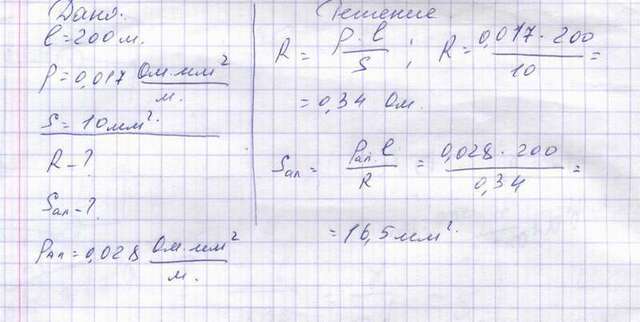 Дано.
l = 200 м.
ρ = 0,017 Ом·мм²/м.
S = 10 мм².
R - ?
Sал - ?
ρал = 0,028 Ом·мм²/м.
Решение
R = ρ·l/S ; R = 0,017·200/10 =
= 0,34 Ом.
Sал = ρал l/R = 0,028·200/0,34 =
= 16,5 мм².